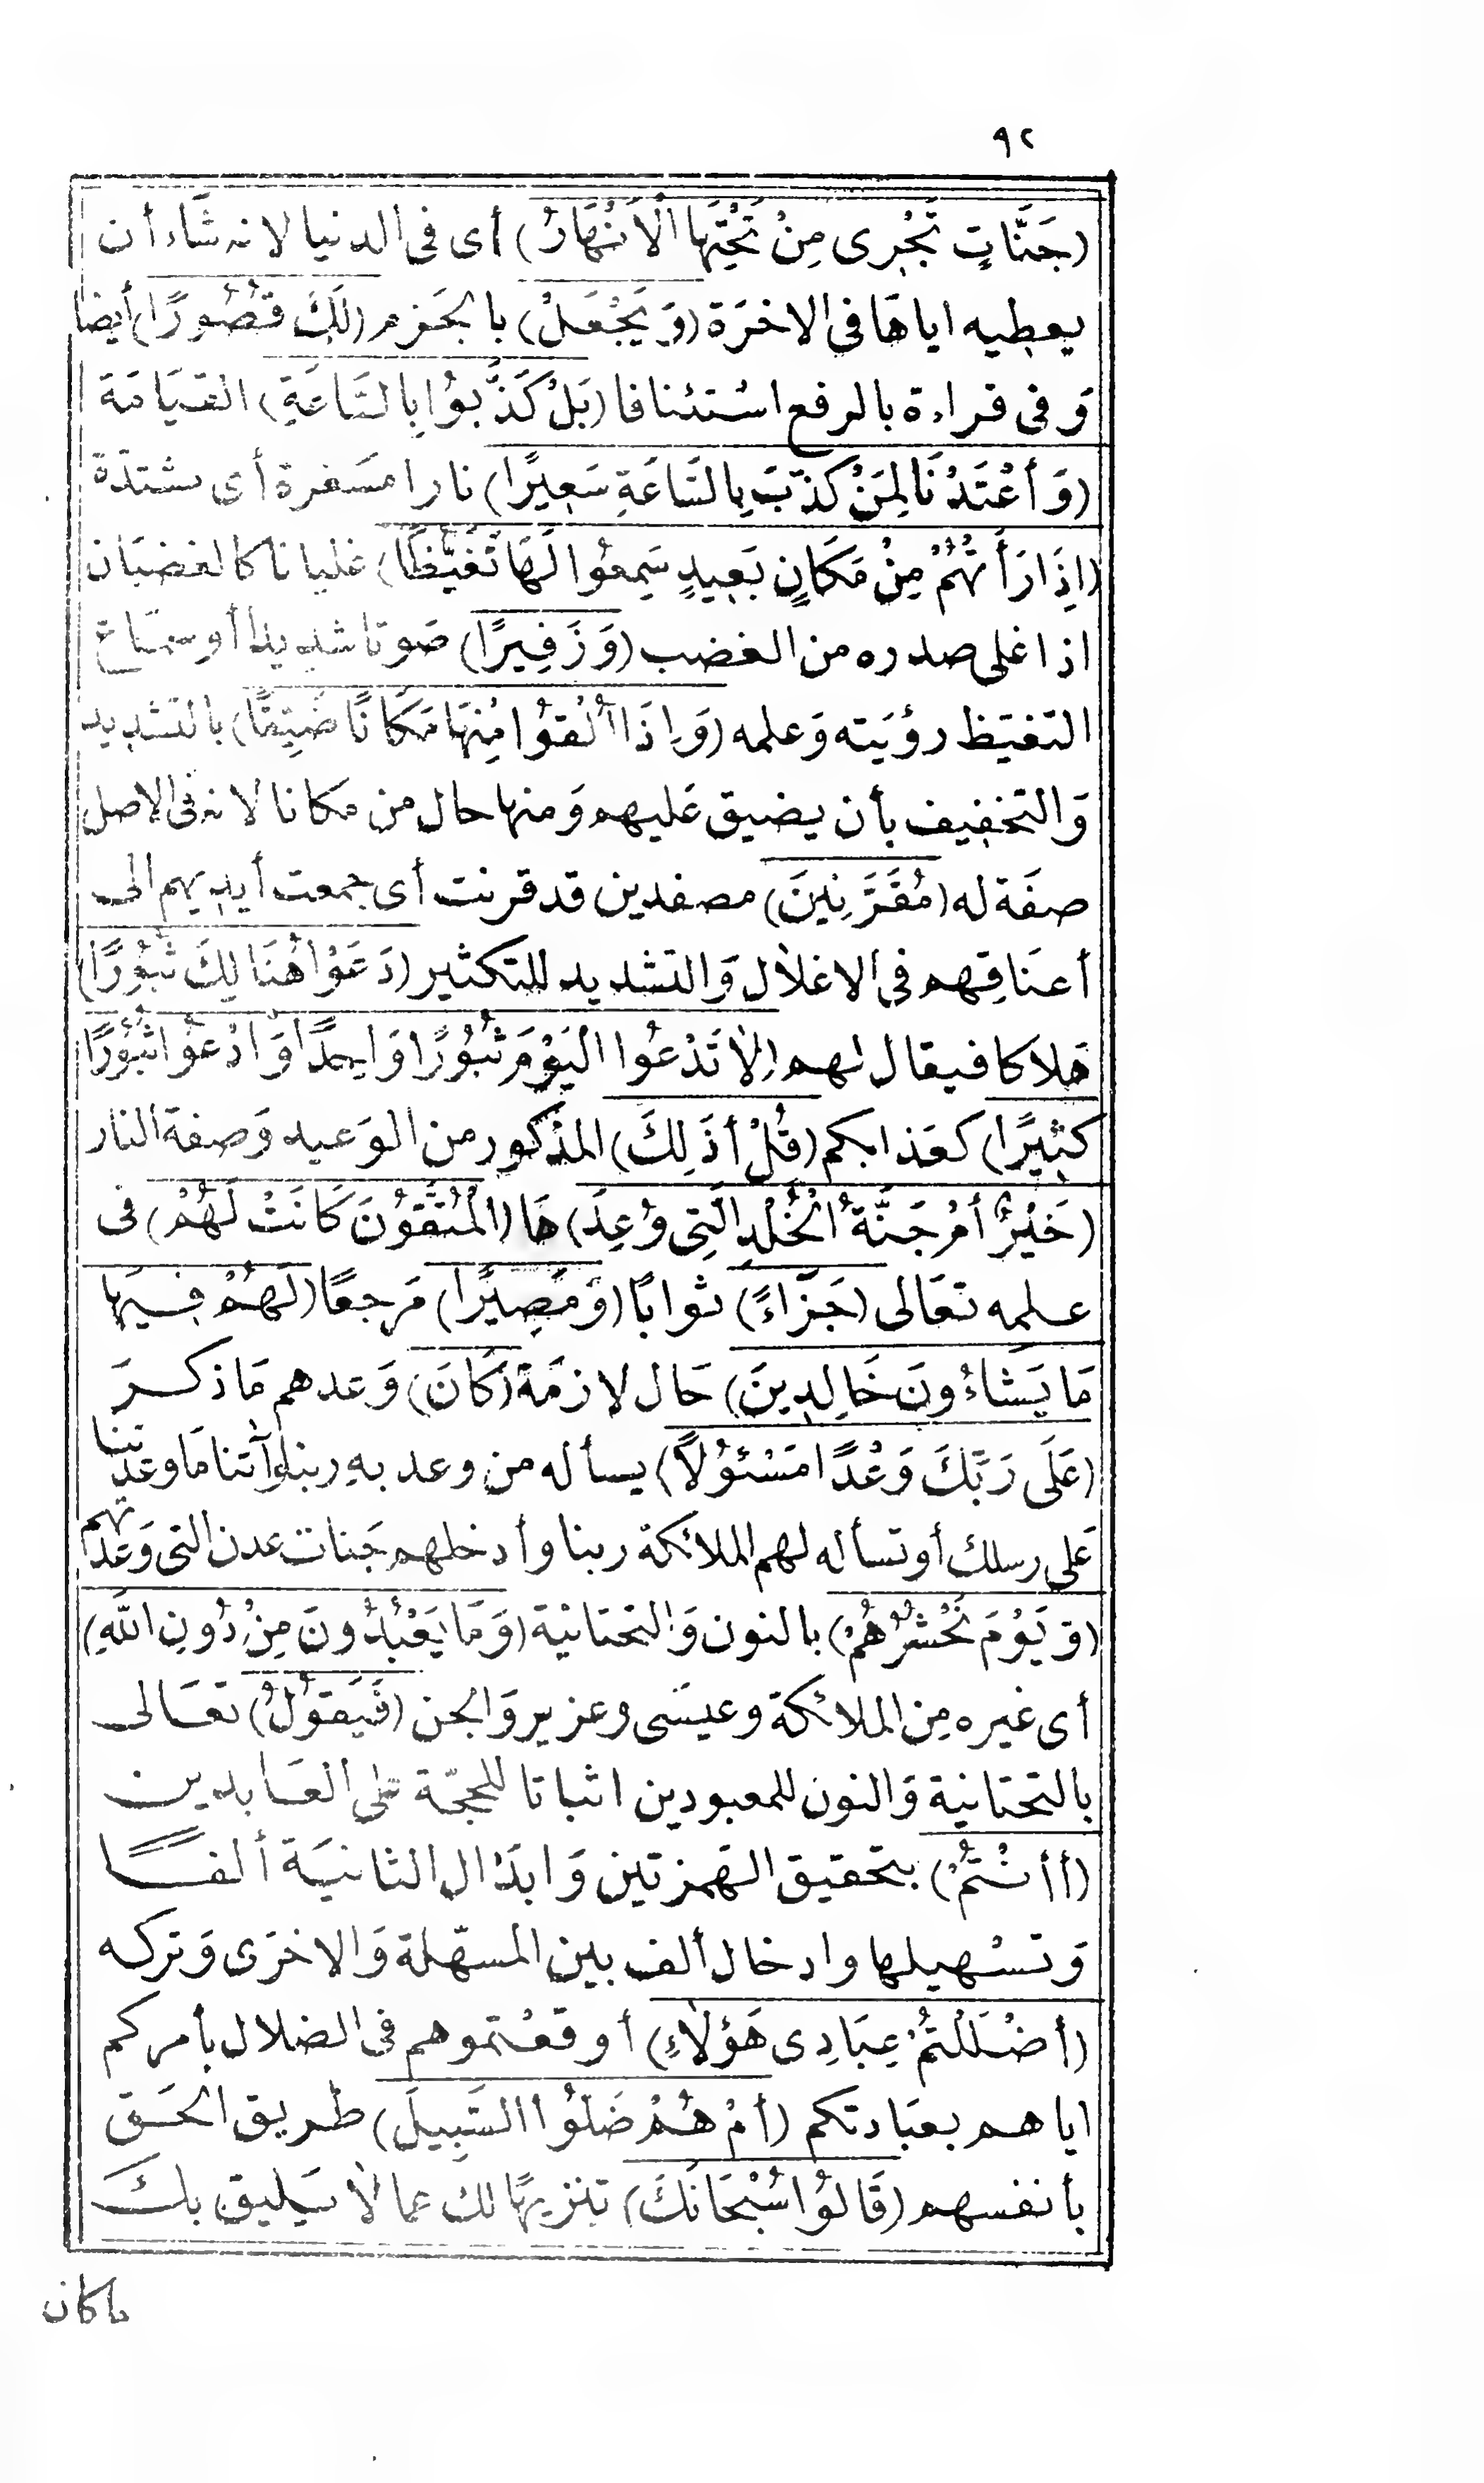 ٩٢
(جَنَّاتٍ تَجْرِى مِنْ تَحْتِهَا الْأَنْهَارُ) أى فى الدنيا لانه شاء أن
يعطيه اياها فى الاخرة (وَيَجْعَلْ) بالجزم (لَكَ قُصُورًا) أيضا
وفى قراءة بالرفع استئنافا (بَلْ كَذَّبُوا بِالسَّاعَةِ) القيامة
(وَأَعْتَدْنَا لِمَنْ كَذَّبَ بِالسَّاعَةِ سَعِيرًا) نارا مسعرة أى مشتدة
(اِذَا رَأَتْهُمْ مِنْ مَكَانٍ بَعِيدٍ سَمِعُوا لَهَا تَغَيُّظًا) غليانا كالغضبان
اذا غلى صدره من الغضب (وَزَفِيرًا) صوتا شديدا أو سماع
التغيظ رؤيته وعلمه (وَاِذَا أُلْقُوا مِنْهَا مَكَانًا ضَيِّقًا) بالتشديد
والتخفيف بأن يضيق عليهم ومنها حال من مكانا لانه فى الاصل
صفة له (مُقَرَّنِينَ) مصفدين قد قرنت أى جمعت أيديهم الى
أعناقهم فى الاغلال والتشديد للتكثير (دَعَوْا هُنَالِكَ ثُبُورًا)
هلاكا فيقال لهم (لَا تَدْعُوا الْيَوْمَ ثُبُورًا وَاحِدًا وَادْعُوا ثُبُورًا
كَثِيرًا) كعذابكم (قُلْ أَذَلِكَ) المذكور من الوعيد وصفة النار
(خَيْرٌ أَمْ جَنَّةُ الْخُلْدِ الَّتِى وُعِدَ) ها (الْمُتَّقُونَ كَانَتْ لَهُمْ) فى
علمه تعالى (جَزَاءً) ثوابًا (وَمَصِيرًا) مرجعًا (لَهُمْ فِيهَا
مَا يَشَاءُونَ خَالِدِينَ) حال لازمة (كَانَ) وعدهم ما ذكر
(عَلَى رَبِّكَ وَعْدًا مَسْئُولًا) يسأله من وعد به ربنا وآتنا ما وعدتنا
على رسلك أو تسأله لهم الملائكة ربنا وأدخلهم جنات عدن التى وعدتهم
(وَيَوْمَ نَحْشُرُهُمْ) بالنون والتحتانية (وَمَا يَعْبُدُونَ مِنْ دُونِ اللَّهِ)
أى غيره من الملائكة وعيسى وعزير والجن (فَيَقُولُ) تعالى
بالتحتانية والنون للمعبودين اثباتا للحجّة على العابدين
(أأنْتُمْ) بتحقيق الهمزتين وابدال الثانية ألفًا
وتسهيلها وادخال ألف بين المسهّلة والاخرى وتركه
(أَضْلَلْتُمْ عِبَادِى هَؤُلَاءِ) أوقعتموهم فى الضلال بأمركم
اياهم بعبادتكم (أَمْ هُمْ ضَلُّوا السَّبِيلَ) طريق الحق
بأنفسهم (قَالُوا سُبْحَانَكَ) تنزيهًا لك عما لا يليق بك
ماكان